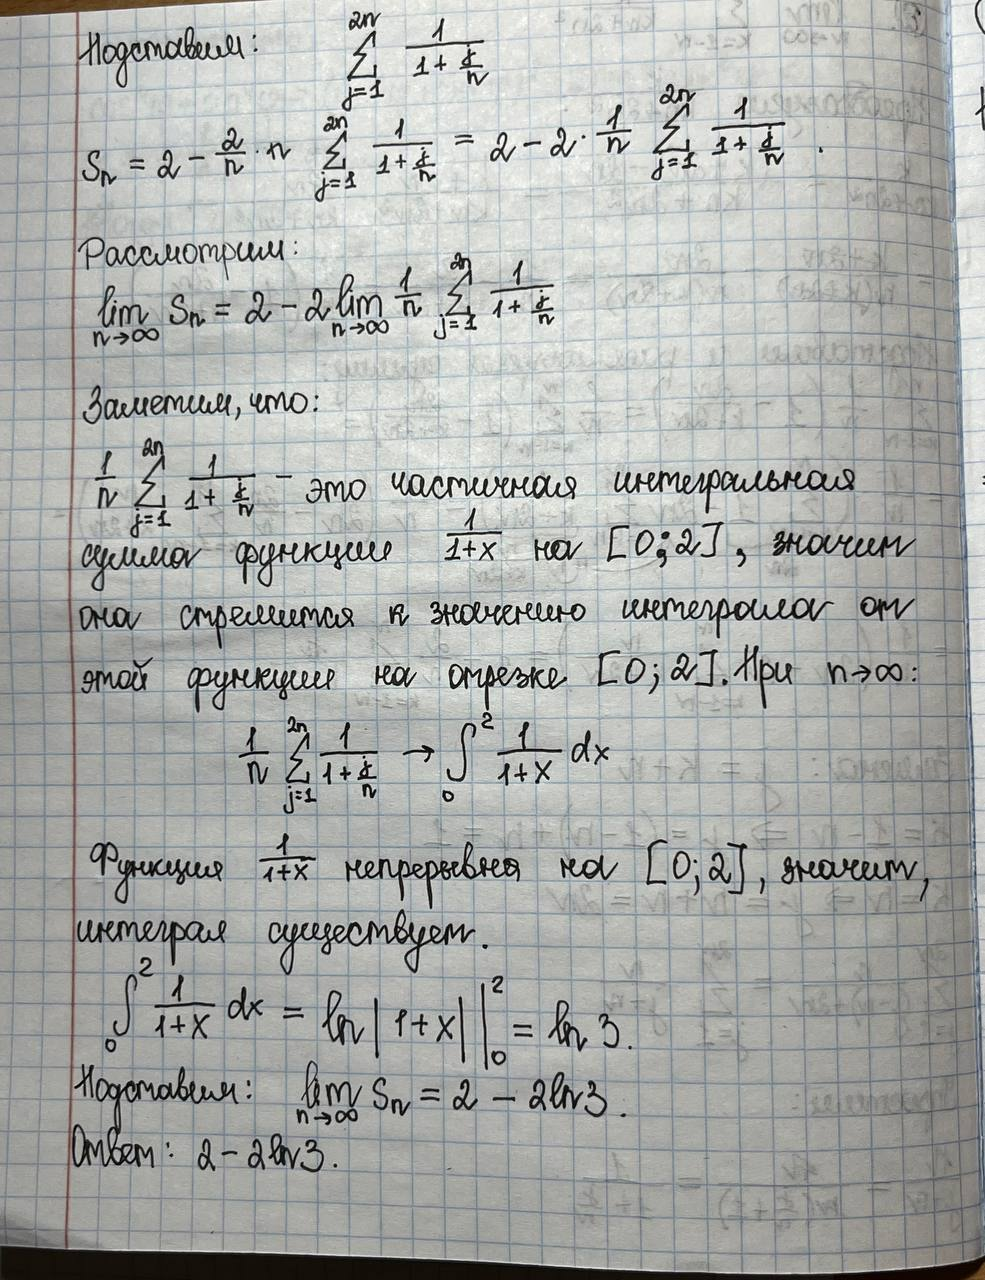 Подставим: \sum_{j=1}^{2n} \frac{1}{1+\frac{j}{n}}
S_n = 2 - \frac{2}{n} \cdot n \sum_{j=1}^{2n} \frac{1}{1+\frac{j}{n}} = 2 - 2 \cdot \frac{1}{n} \sum_{j=1}^{2n} \frac{1}{1+\frac{j}{n}} .
Рассмотрим:
\lim_{n→∞} S_n = 2 - 2 \lim_{n→∞} \frac{1}{n} \sum_{j=1}^{2n} \frac{1}{1+\frac{j}{n}}
Заметим, что:
\frac{1}{n} \sum_{j=1}^{2n} \frac{1}{1+\frac{j}{n}} - это частичная интегральная
сумма функции \frac{1}{1+x} на [0;2], значит
она стремится к значению интеграла от
этой функции на отрезке [0;2]. При n→∞:
\frac{1}{n} \sum_{j=1}^{2n} \frac{1}{1+\frac{j}{n}} → \int_0^2 \frac{1}{1+x} dx
Функция \frac{1}{1+x} непрерывна на [0;2], значит,
интеграл существует.
\int_0^2 \frac{1}{1+x} dx = ln|1+x| |_0^2 = ln 3.
Подставим: \lim_{n→∞} S_n = 2 - 2ln3.
Ответ: 2 - 2ln3.